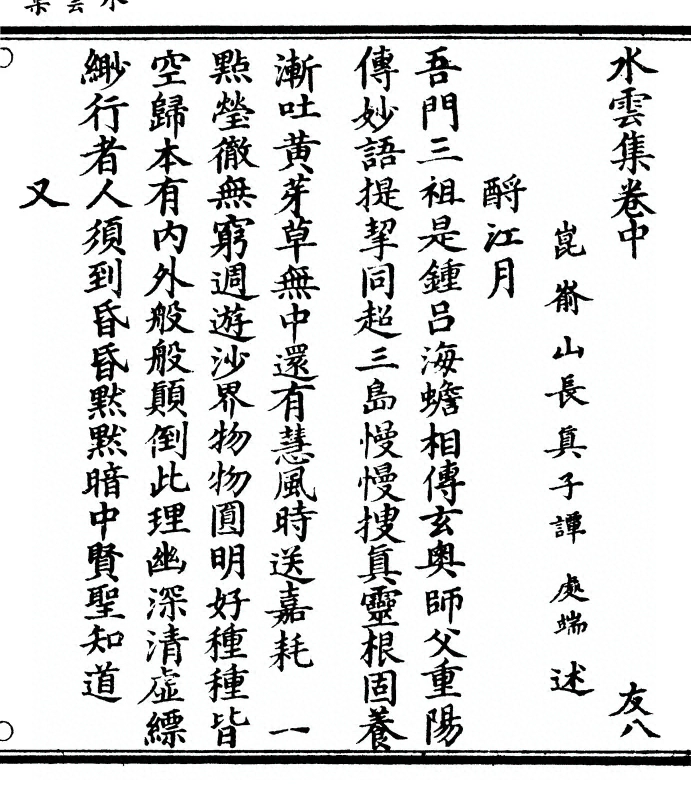 水雲集卷中　友八
崑崙山長眞子譚處端述
酹江月
吾門三祖是鍾呂海蟾相傳玄奧師父重陽
傳妙語提挈同超三島慢慢搜眞靈根固養
漸吐黃芽草無中還有慧風時送嘉耗　一
點瑩徹無窮週遊沙界物物圓明好種種皆
空歸本有內外般般顛倒此理幽深清虛縹
緲行者人須到昏昏默默暗中賢聖知道
又